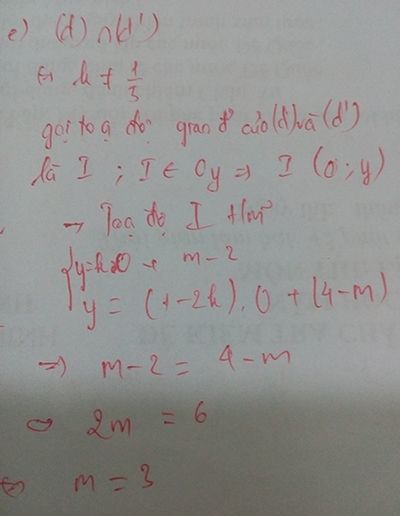 e) (d) ∩ (d')
⇔ k ≠ 1/3
gọi toạ độ giao đ' của (d) và (d')
là I ; I ∈ Oy ⇒ I (0; y)
→ Toạ độ I t/m
{ y = k.0 + m - 2
y = (1-2k).0 + (4-m)
⇒ m - 2 = 4 - m
⇔ 2m = 6
⇔ m = 3